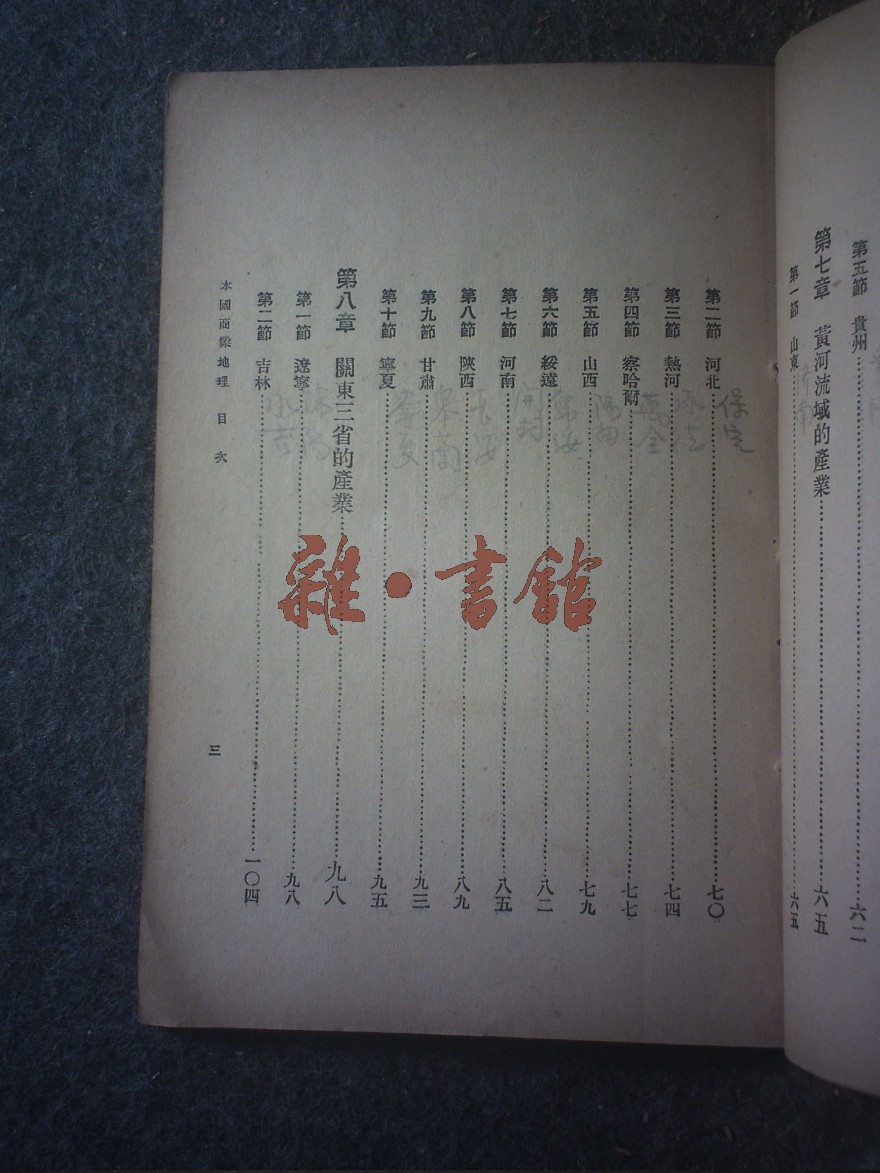 第五節　貴州……六二
第七章　黃河流域的產業……六五
第一節　山東……六五
濟南
第二節　河北……七〇
保定
第三節　熱河……七四
承德
第四節　察哈爾……七七
萬全
第五節　山西……七九
陽曲
第六節　綏遠……八二
歸綏
第七節　河南……八五
開封
第八節　陝西……八九
長安
第九節　甘肅……九三
皋蘭
第十節　寧夏……九五
寧夏
第八章　關東三省的產業……九八
第一節　遼寧……九八
第二節　吉林……一〇四
永吉
本國商業地理　目次
三
雜·書館